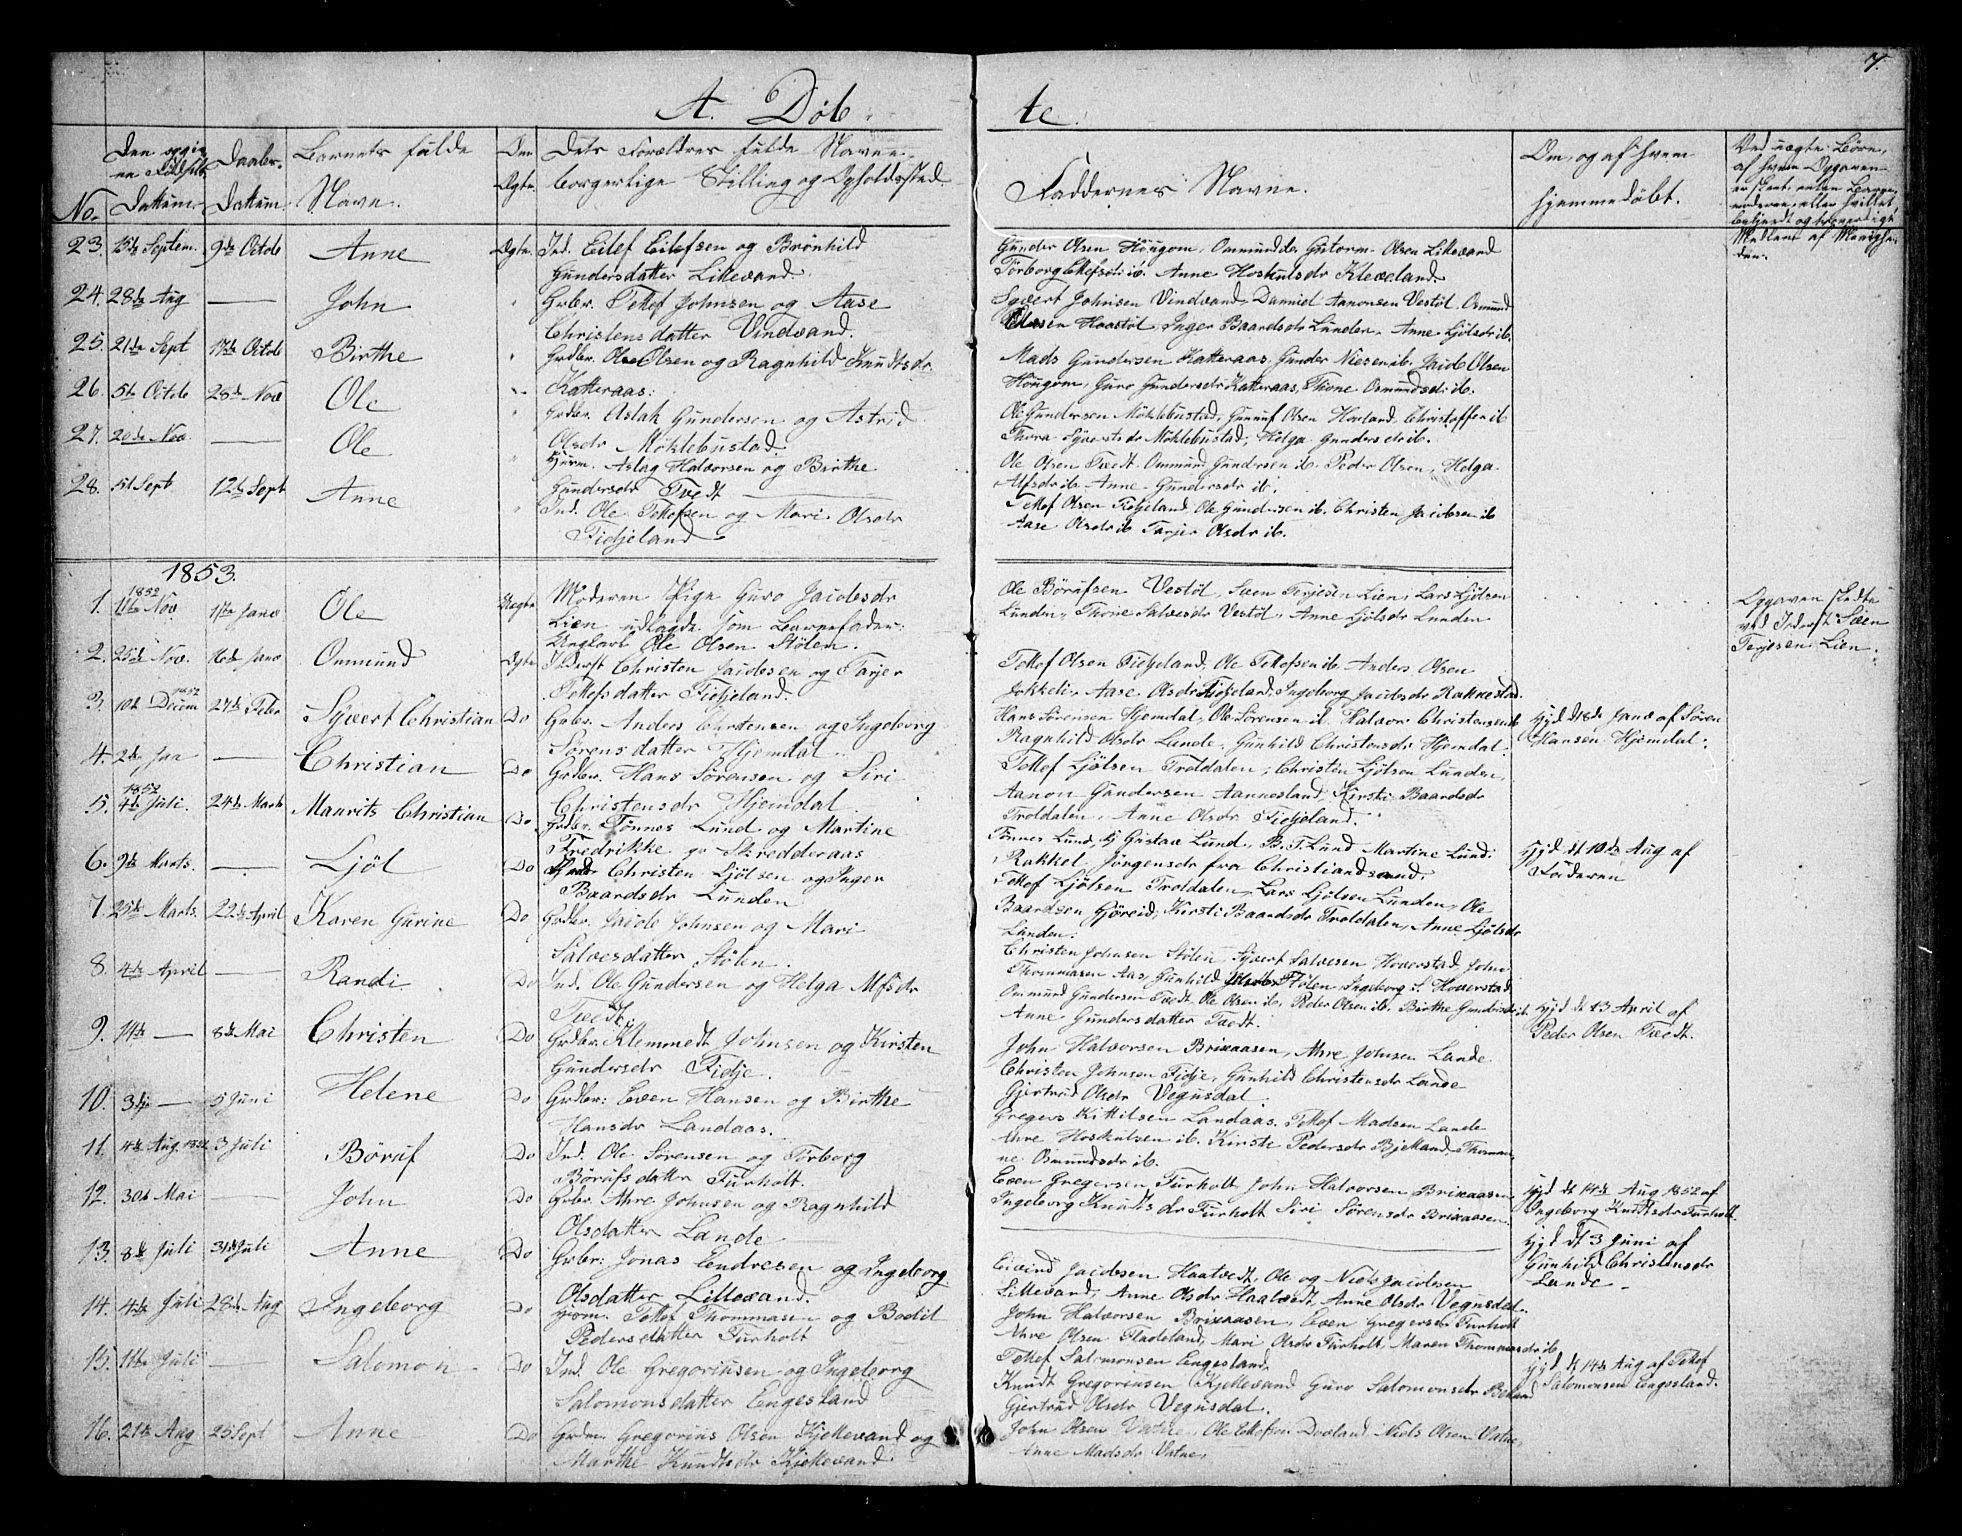 7.
A. Døb te.
No.
Den opgivne Fødsels Dattum.
Daabens Dattum.
Barnets fulde Navn.
Om Ægte
Dets Forældres fulde Navne borgerlige Stilling og Opholdssted.
Faddernes Navne.
Om, og af hvem hjemmedøbt.
23. 15de Septem. 9de Octob Anne Ægte Ind. Eilef Eilefsen og Brønhild
Gundersdatter Lillevand.
Gunder Olsen Hougom, Ommund Guttorm Olsen Lillevand
Anne Hoskulsdr Kleveland.
24. 28de Aug — John Grbr. Tellef Johnsen og Aase
Christensdatter Vindvand.
Syvert Johnsen Vindvand, Daniel Aanonsen Vestøl, Osmund
Olsen Haastøl, Inger Baardsdr Lunden, Anne Ljølsdr ib.
25. 21de Sept 17de Octob Birthe Grdbr. Ole Olsen og Ragnhild Knudtsdr
Katteraas.
Mads Gundersen Katteraas, Gunder Nielsen ib, Jacob Olsen
Hougom, Guro Gundersdr Katteraas, Thone Osmundsdr ib.
26. 5te Octob 28de Nov Ole Grdbr. Aslak Gundersen og Astrid
Olsdr Møklebustad.
Ole Gundersen Møklebustad, Gunuf Olsen Hovland, Christoffer ib
Thora Syvertsdr Møklebustad, Helga Gundersdr ib.
27. 20de Nov — Ole Huusm. Aslag Halvorsen og Birthe
Gundersdr Tvedt
Ole Olsen Tvedt, Ommund Gundersen ib, Peder Olsen, Helga
Alfsdr ib. Anne Gundersdr ib.
28. 5te Sept 12te Sept Anne Ind. Ole Tellefsen og Mari Olsdr
Fidjeland
Tellef Olsen Fidjeland, Ole Gundersen ib. Christen Jacobsen ib
Aase Olsdr ib Tarjer Olsdr ib.
1853.
1. 1852 11te Nov 1ste Janv Ole Uægte Moderen Pige Guro Jacobsdr
Lien udlagde som Barnefader:
Ungkarl Ole Olsen Stølen.
Ole Børufsen Vestøl, Sven Terjesen Lien, Lars Ljølsen
Lunden, Thone Salvesdr Vestøl, Anne Ljølsdr Lunden
Opgaven skedte
ved Inderst Sven
Terjesen Lien.
2. 25de Nov. 16de Janv Ommund Ægte Inderst Christen Jacobsen og Tarjer
Tellefsdatter Fidjeland.
Tellef Olsen Fidjeland, Ole Tellefsen ib. Anders Olsen
Jokkeli, Aase Olsdr Fidjeland, Ingeborg Jacobsdr Rakkestad.
3. 10de Decem 1852 27de Febr Syvert Christian Do Grbr. Anders Christensen og Ingeborg
Sørensdatter Hjemdal
Hans Sørensen Hjemdal, Ole Sørensen ib. Halvor Christensen ib
Ragnhild Olsdr Lande, Gunhild Christensdr Hjemdal.
Hjd d 18de Janv af Søren
Hansen Hjemdal.
4. 2de Jan — Christian Do Grdbr. Hans Sørensen og Siri
Christensdr Hjemdal
Tellef Ljølsen Troldalen, Christen Ljølsen Lunden,
Aanon Gundersen Aannesland, Kirsti Baardsdr
Troldalen, Anne Olsdr Fidjeland.
5. 1852 4de Juli. 24de Marts Maurits Christian Do Grdbr. Tønnes Lund og Martine
Fredrikke Skredderaas
Tønnes Lund, Gustav Lund, B. T. Lund Martine Lund
Rakkel Jørgensdr fra Christiandsand.
Hjd dt 10de Aug af
Faderen
6. 9de Marts. — Ljøl Do Christen Ljølsen og Inger
Baardsdr Lunden
Tellef Ljølsen Troldalen, Lars Ljølsen Lunden, Ole
Baardsen Gjøreid, Kirsti Baardsdr Troldalen, Anne Ljølsdr
Lunden.
7. 25de Marts. 22de April Karen Gurine Do Grdbr. Jacob Johnsen og Mari
Salvesdatter Stølen.
Christen Johnsen Stølen, Syvert Salvesen Hoverstad, John
Thommasen Aas, Gunhild Stølen, Ingeborg S. Hoverstad
8. 4de April — Randi Do Ind. Ole Gundersen og Helga Alfsdr
Tvedt.
Ommund Gundersen Tvedt, Ole Olsen ib. Peder Olsen ib, Birthe Gundersdr ib
Anne Gundersdatter Tvedt.
Hjd dt 13 April af
Peder Olsen Tvedt.
9. 14de — 8de Mai Christen Do Grdbr. Klemmedt Johnsen og Kirsten
Gundersdr Fidje.
John Halvorsen Brixaasen, Ahre Johnsen Lande
Christen Johnsen Fidje, Gunhild Christensdr Lande
Gjertrud Olsdr Vegusdal.
10. 3de — 5 Juni Helene Do Grdbr: Even Hansen og Birthe
Hansdr Landaas.
Gregers Kittilsen Landaas, Tellef Madsen Lande
Ahre Hoskulsen ib. Kirsti Pedersdr Bjelland, Thomm
ne Osmundsdr ib.
11. 4de Aug 1852 3 Juli Børuf Do Ind. Ole Sørensen og Torborg
Børufsdatter Furholt.
Even Gregersen Furholt John Halvorsen Brixaasen,
Ingeborg Knudtsdr Furholt Siri Sørensdr Brixaasen.
Hjd dt 14de Aug 1852 af
Ingeborg Knudtsdr Furholt.
12. 30te Mai — John Do Grbr. Ahre Johnsen og Ragnhild
Olsdatter Lande
Hjd dt 3 Juni af
Gunhild Christensdr
Lande
13. 8de Juli 31te Juli Anne Do Grbr: Jonas Endresen og Ingeborg
Olsdatter Lillevand.
Eivind Jacobsen Haatvedt, Ole og Niels Jacobsen
Lillevand, Anne Olsdr Haatvedt, Anne Olsdr Vegusdal.
14. 4de Juli 28de Aug Ingeborg Do Huusm. Tellef Thommasen og Bodil
Pedersdatter Furholt
John Halvorsen Brixaasen, Even Gregersen Furholt
Ahre Olsen Fladeland, Mari Olsdr Furholt, Maren Thommasdr ib
15. 11te Juli — Salomon Do Ind. Ole Gregoriusen og Ingeborg
Salomonsdatter Engesland
Tellef Salomonsen Engesland,
Knudt Gregoriusen Kjellevand Guro Salomonsdr
Gjertrud Olsdr Vegusdal.
Hjd dt 14de Aug af Tellef
Salomonsen Engesland.
16. 21de Aug 25 Sept Anne Do Gregorius Olsen Kjellevand og
Marthe Knudtsdr Kjellevand.
John Olsen Vatne, Ole Ellefsen Dovland, Niels Olsen Vatne,
Anne Madsdr Vatne,